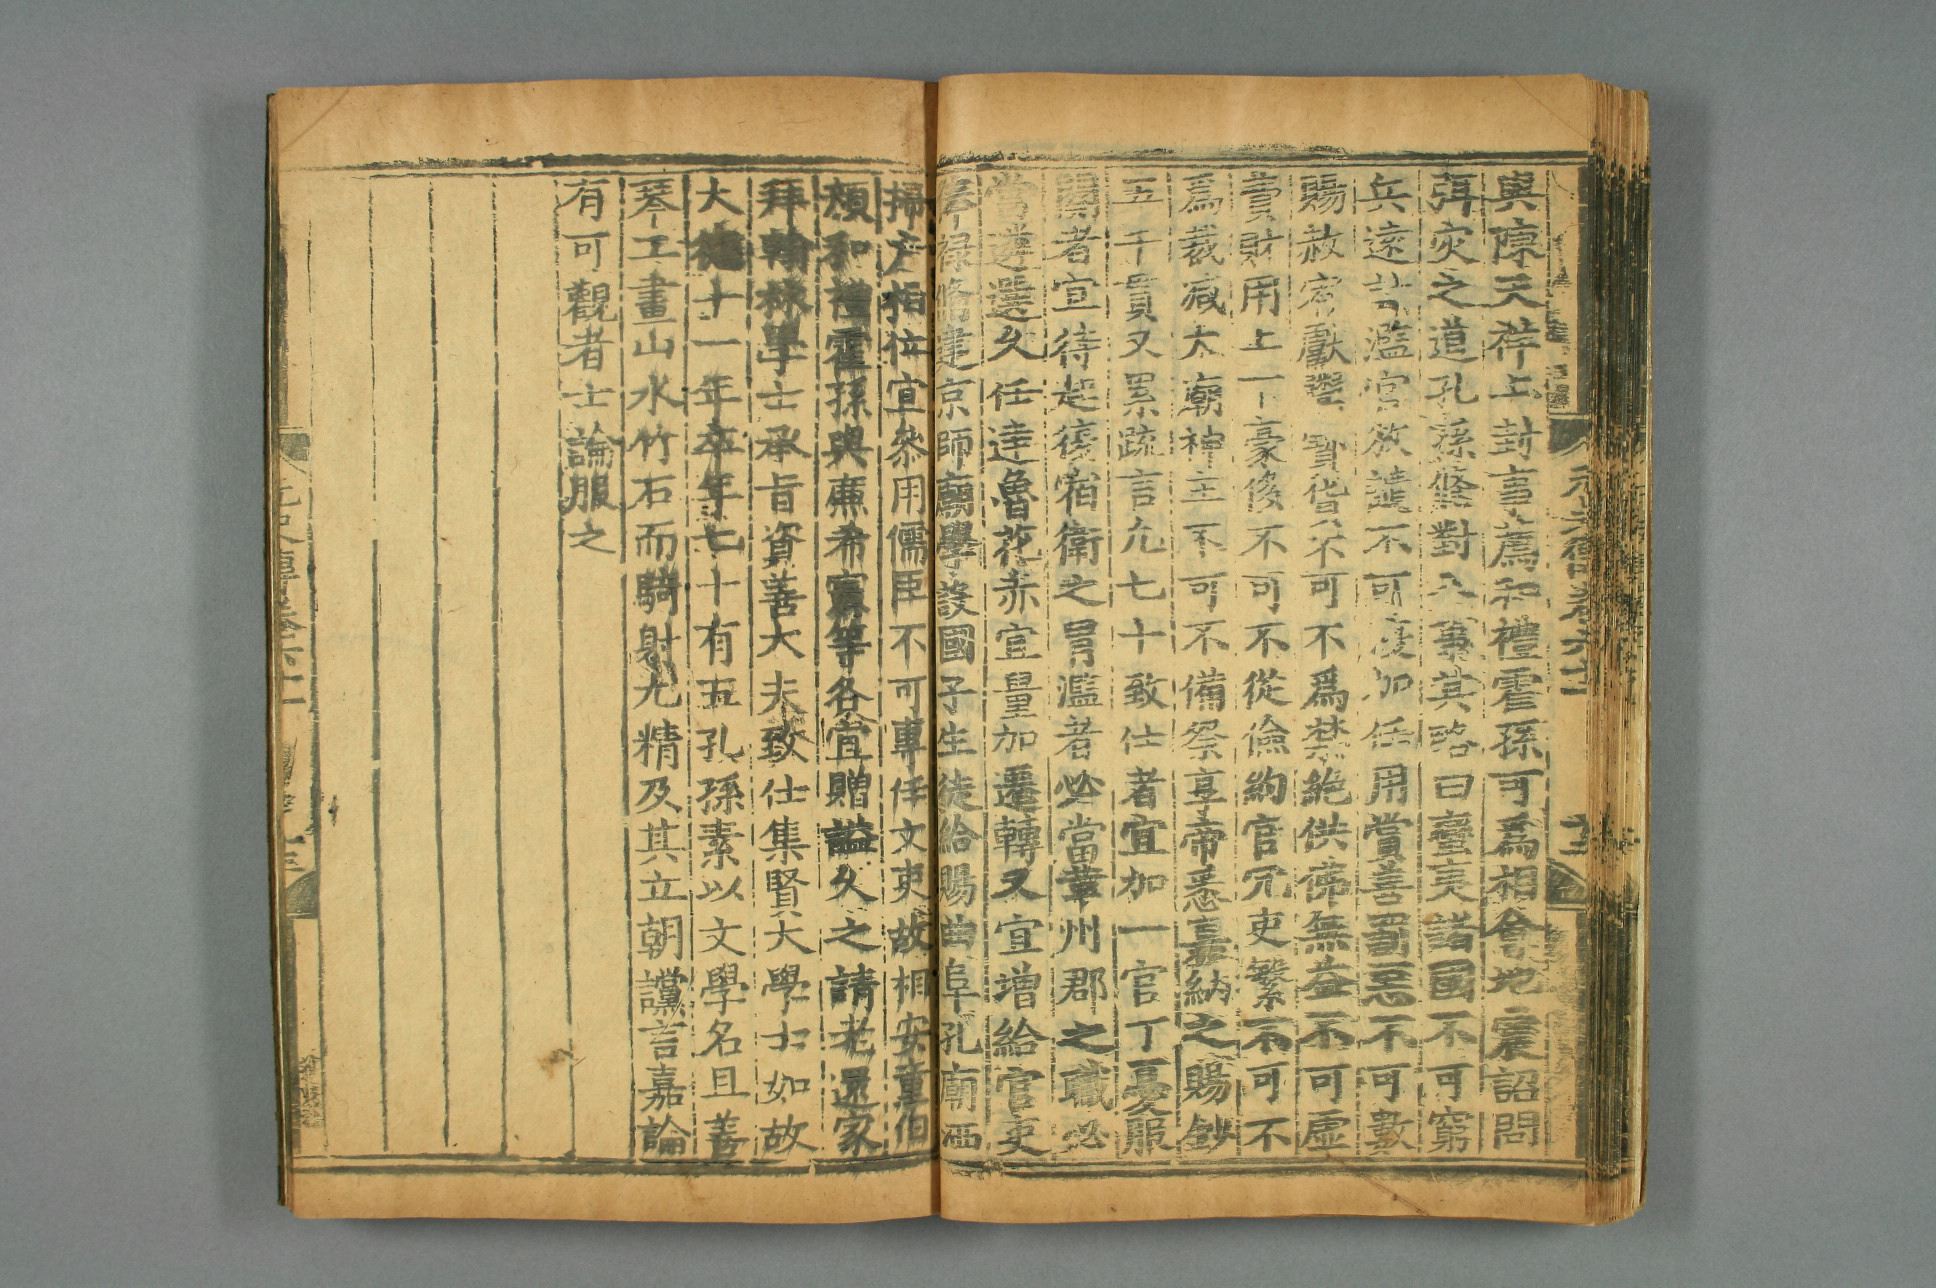 與陳天祥上封事薦和禮霍孫可爲相會地震詔問
弭灾之道孔孫條對八事其略曰蠻夷諸國不可窮
兵遠討濫官放譴不可復加任用賞善罰惡不可數
賜赦宥獻鬻寳貨不可不爲禁絶供佛無益不可虛
費財用上下豪侈不可不從儉約官冗吏繁不可不
爲裁减太廟神主不可不備祭享帝悉嘉納之賜鈔
五千貫又累疏言凡七十致仕者宜加一官丁憂服
闋者宜待起復宿衛之冐濫者必當革州郡之職必
當遴選久任達魯花赤宜量加遷轉又宜增給官吏
俸禄脩建京師廟學設國子生徒給賜曲阜孔廟洒
掃户相位宜叅用儒臣不可專任文吏故相安童伯
顔和禮霍孫與廉希憲等各宜贈謚久之請老還家
拜翰林學士承旨資善大夫致仕集賢大學士如故
大德十一年卒年七十有五孔孫素以文學名且善
琴工畫山水竹石而騎射尤精及其立朝讜言嘉論
有可觀者士論服之